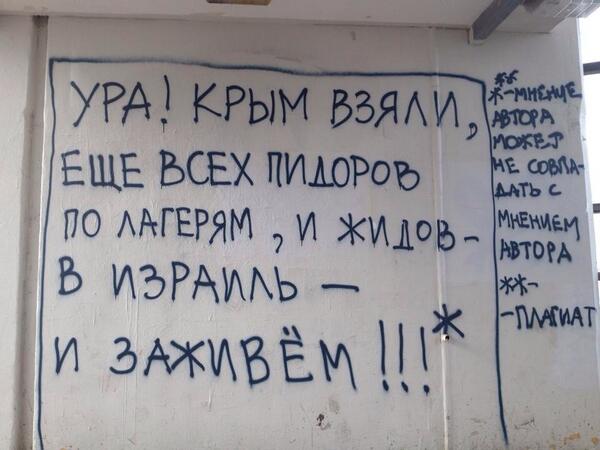 УРА! КРЫМ ВЗЯЛИ,
ЕЩЕ ВСЕХ ПИДОРОВ
ПО ЛАГЕРЯМ, И ЖИДОВ-
В ИЗРАИЛЬ —
И ЗАЖИВЁМ!!!*
**
*-МНЕНИЕ
АВТОРА
МОЖЕТ
НЕ СОВПА-
ДАТЬ С
МНЕНИЕМ
АВТОРА
**-
-ПЛАГИАТ